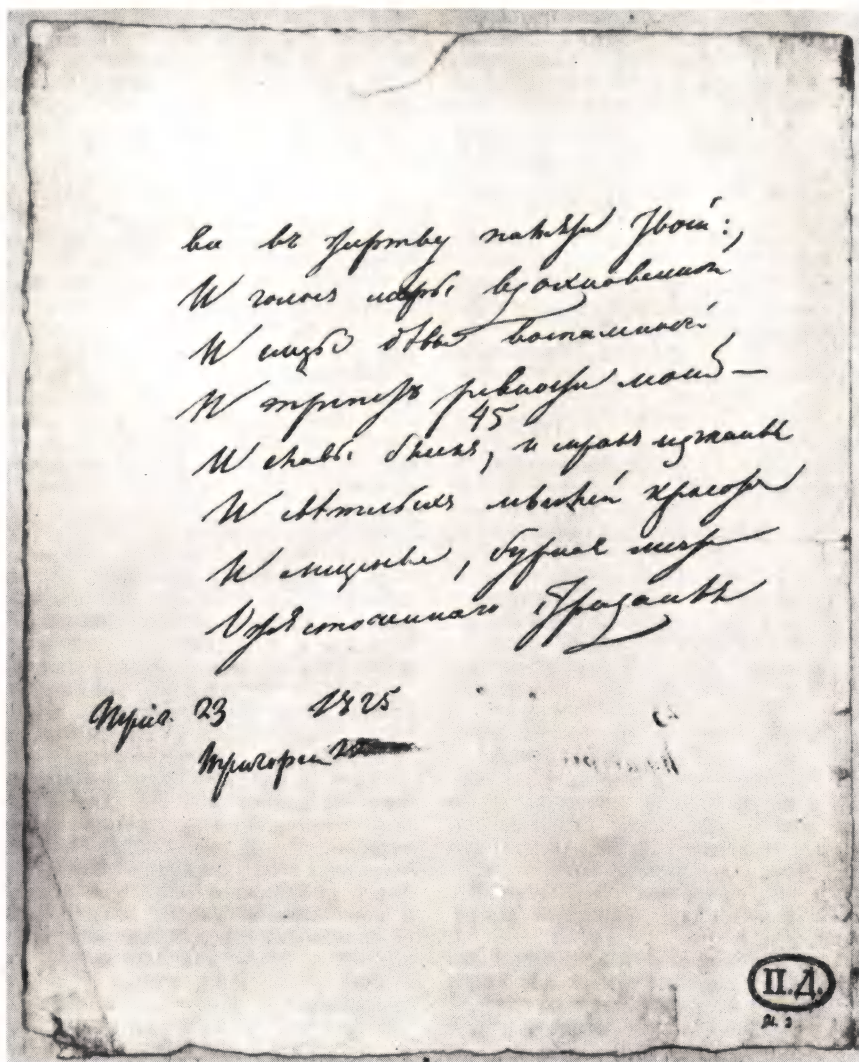 все въ жертву памяти твоей:,
И голосъ лиры вдохновенной
И слезы дѣвы воспаленной,
И трепетъ ревности моей —
45
И славы блескъ, и мракъ изгнанья
И свѣтлыхъ мыслей красота
И мщенье, бурная мечта
Ожесточеннаго страданья
23 1825
П.Д.